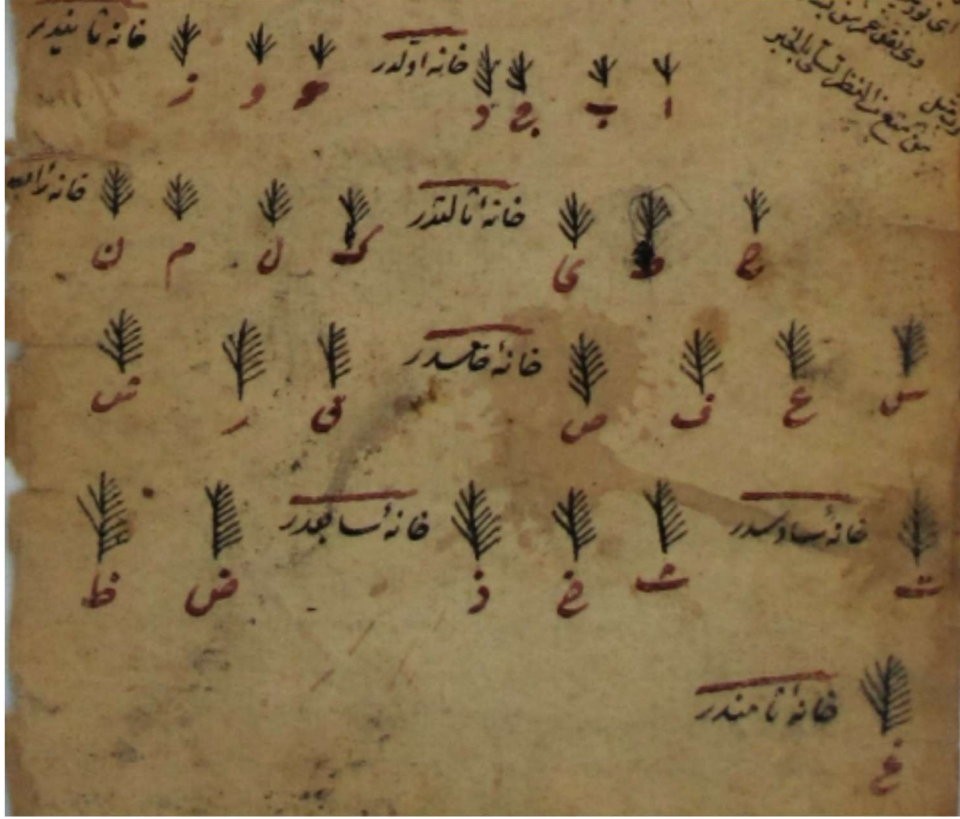 ا ب ج د خانه اولدر ه و ز خانه ثانیدر
ح ط ی خانهٔ ثالثدر ك ل م ن خانه
س ع ف ص خانهٔ خامسدر ق ر ش
ت خانهٔ سادسدر ث خ ذ خانهٔ سابعدر ض ظ
غ خانهٔ ثامندر